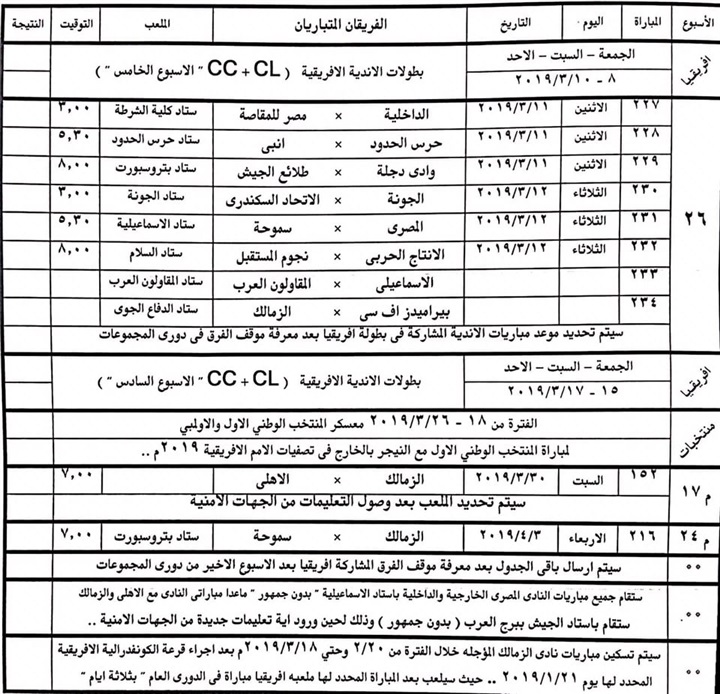 الأسبوع المباراة اليوم التاريخ الفريقان المتباريان الملعب التوقيت النتيجة
افريقيا الجمعة - السبت - الاحد بطولات الاندية الافريقية ( CC + CL " الاسبوع الخامس " )
٨ - ٢٠١٩/٣/١٠
٢٦
٢٢٧ الاثنين ٢٠١٩/٣/١١ الداخلية × مصر للمقاصة ستاد كلية الشرطة ٣,٠٠
٢٢٨ الاثنين ٢٠١٩/٣/١١ حرس الحدود × انبى ستاد حرس الحدود ٥,٣٠
٢٢٩ الاثنين ٢٠١٩/٣/١١ وادى دجلة × طلائع الجيش ستاد بتروسبورت ٨,٠٠
٢٣٠ الثلاثاء ٢٠١٩/٣/١٢ الجونة × الاتحاد السكندرى ستاد الجونة ٣,٠٠
٢٣١ الثلاثاء ٢٠١٩/٣/١٢ المصرى × سموحة ستاد الاسماعيلية ٥,٣٠
٢٣٢ الثلاثاء ٢٠١٩/٣/١٢ الانتاج الحربى × نجوم المستقبل ستاد السلام ٨,٠٠
٢٣٣ الاسماعيلى × المقاولون العرب ستاد المقاولون العرب
٢٣٤ بيراميدز اف سى × الزمالك ستاد الدفاع الجوى
سيتم تحديد موعد مباريات الاندية المشاركة فى بطولة افريقيا بعد معرفة موقف الفرق فى دورى المجموعات
افريقيا الجمعة - السبت - الاحد بطولات الاندية الافريقية ( CC + CL " الاسبوع السادس " )
١٥ - ٢٠١٩/٣/١٧
منتخبات الفترة من ١٨ - ٢٠١٩/٣/٢٦ معسكر المنتخب الوطني الاول والاولمبي
لمباراة المنتخب الوطني الاول مع النيجر بالخارج فى تصفيات الامم الافريقية ٢٠١٩م ..
م ١٧ ١٥٢ السبت ٢٠١٩/٣/٣٠ الزمالك × الاهلى ٧,٠٠
سيتم تحديد الملعب بعد وصول التعليمات من الجهات الامنية
م ٢٤ ٢١٦ الاربعاء ٢٠١٩/٤/٣ الزمالك × سموحة ستاد بتروسبورت ٧,٠٠
٠٠ سيتم ارسال باقى الجدول بعد معرفة موقف الفرق المشاركة افريقيا بعد الاسبوع الاخير من دورى المجموعات
٠٠ ستقام جميع مباريات النادى المصرى الخارجية والداخلية باستاد الاسماعيلية " بدون جمهور " ماعدا مباراتى النادى مع الاهلى والزمالك
ستقام باستاد الجيش ببرج العرب ( بدون جمهور ) وذلك لحين ورود اية تعليمات جديدة من الجهات الامنية ..
٠٠ سيتم تسكين مباريات نادى الزمالك المؤجله خلال الفترة من ٢/٢٠ وحتي ٢٠١٩/٣/١٨م بعد اجراء قرعة الكونفدرالية الافريقية
المحدد لها يوم ٢٠١٩/١/٢١ .. حيث سيلعب بعد المباراة المحدد لها ملعبه افريقيا مباراة فى الدورى العام " بثلاثة ايام "